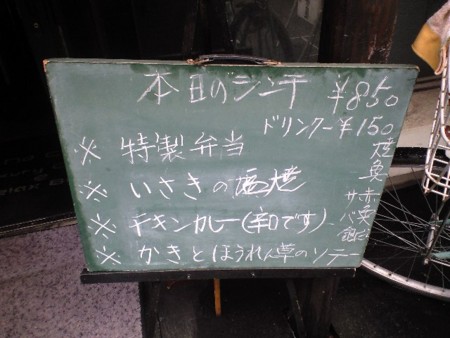 本日のランチ ¥850
ドリンクー¥150
※ 特製弁当
※ いさきの塩焼
※ チキンカレー(辛口です)
※ かきとほうれん草のソテー
焼魚
赤
サバ